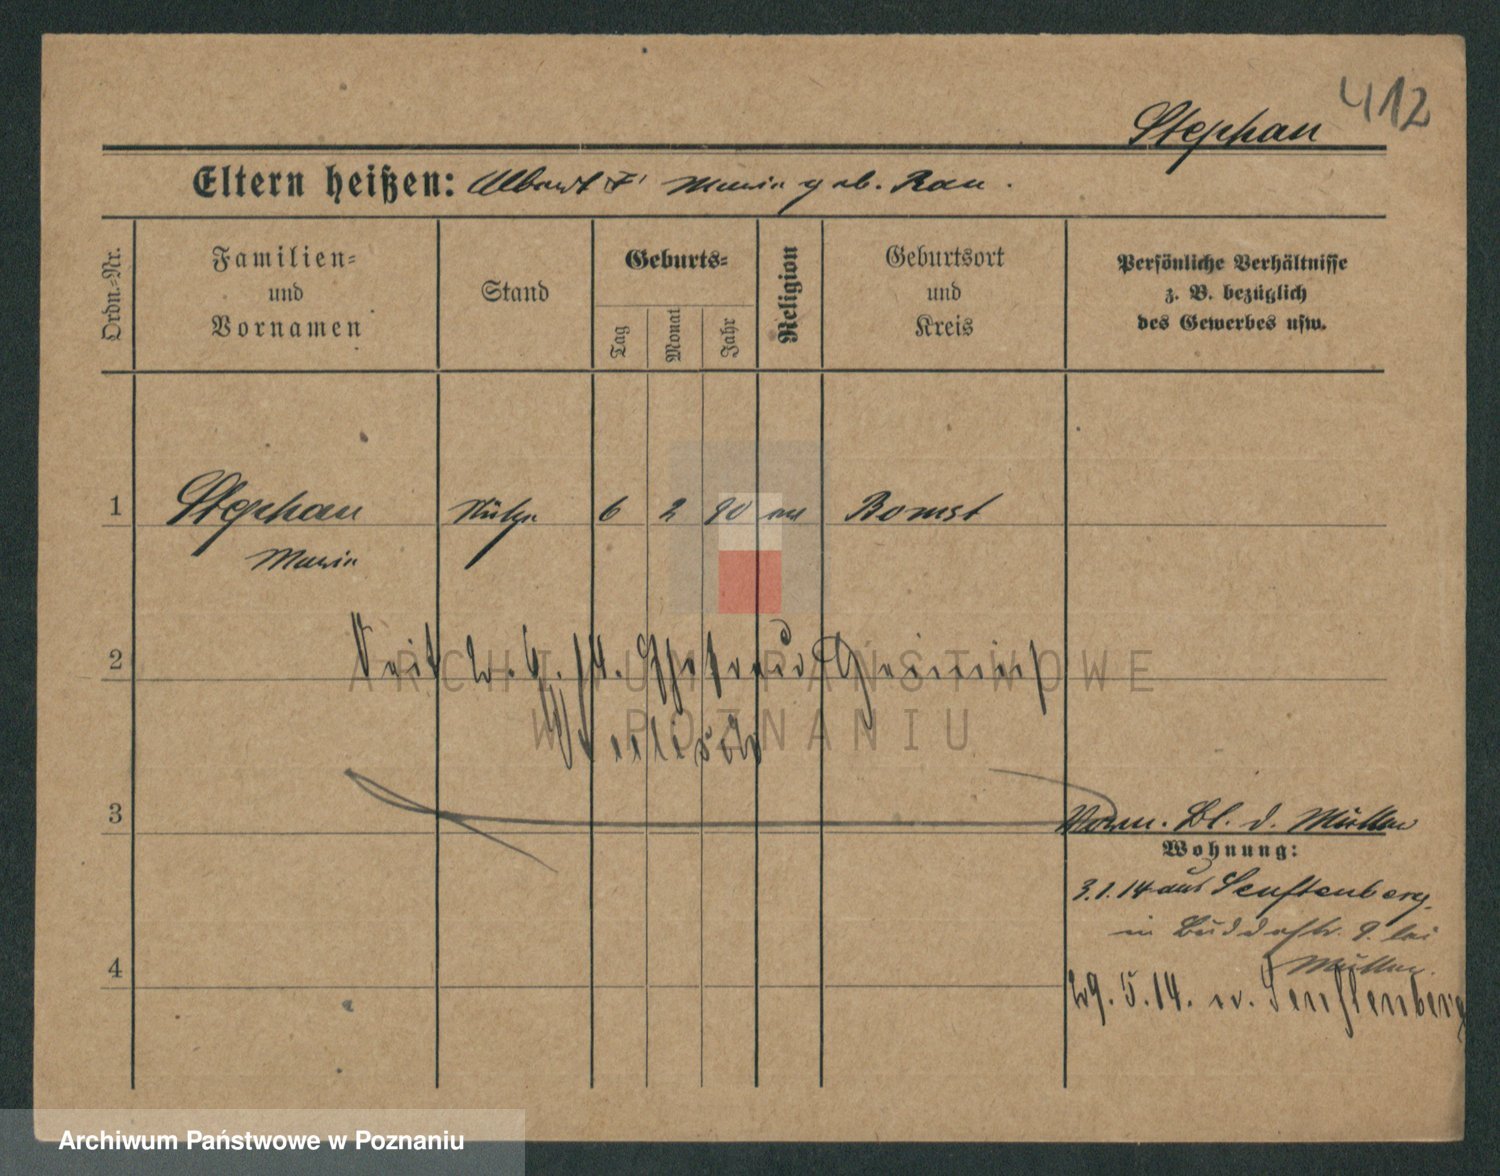 412
Stephan
Eltern heißen: Albert F. Marie geb. Rau.
Ordn.-Nr.
Familien-
und
Vornamen
Stand
Geburts-
Tag
Monat
Jahr
Religion
Geburtsort
und
Kreis
Persönliche Verhältnisse
z. B. bezüglich
des Gewerbes usw.
1 Stephan Stütze 6 2 90 ev Bomst
Marie
2
ARCHIWUM PAŃSTWOWE
W POZNANIU
3
Vorm. Bl. d. Mutter
Wohnung:
3.1.14 aus Senftenberg
in Buddestr. 9. bei
Mutter.
4
29.5.14. n. Senftenberg
Archiwum Państwowe w Poznaniu